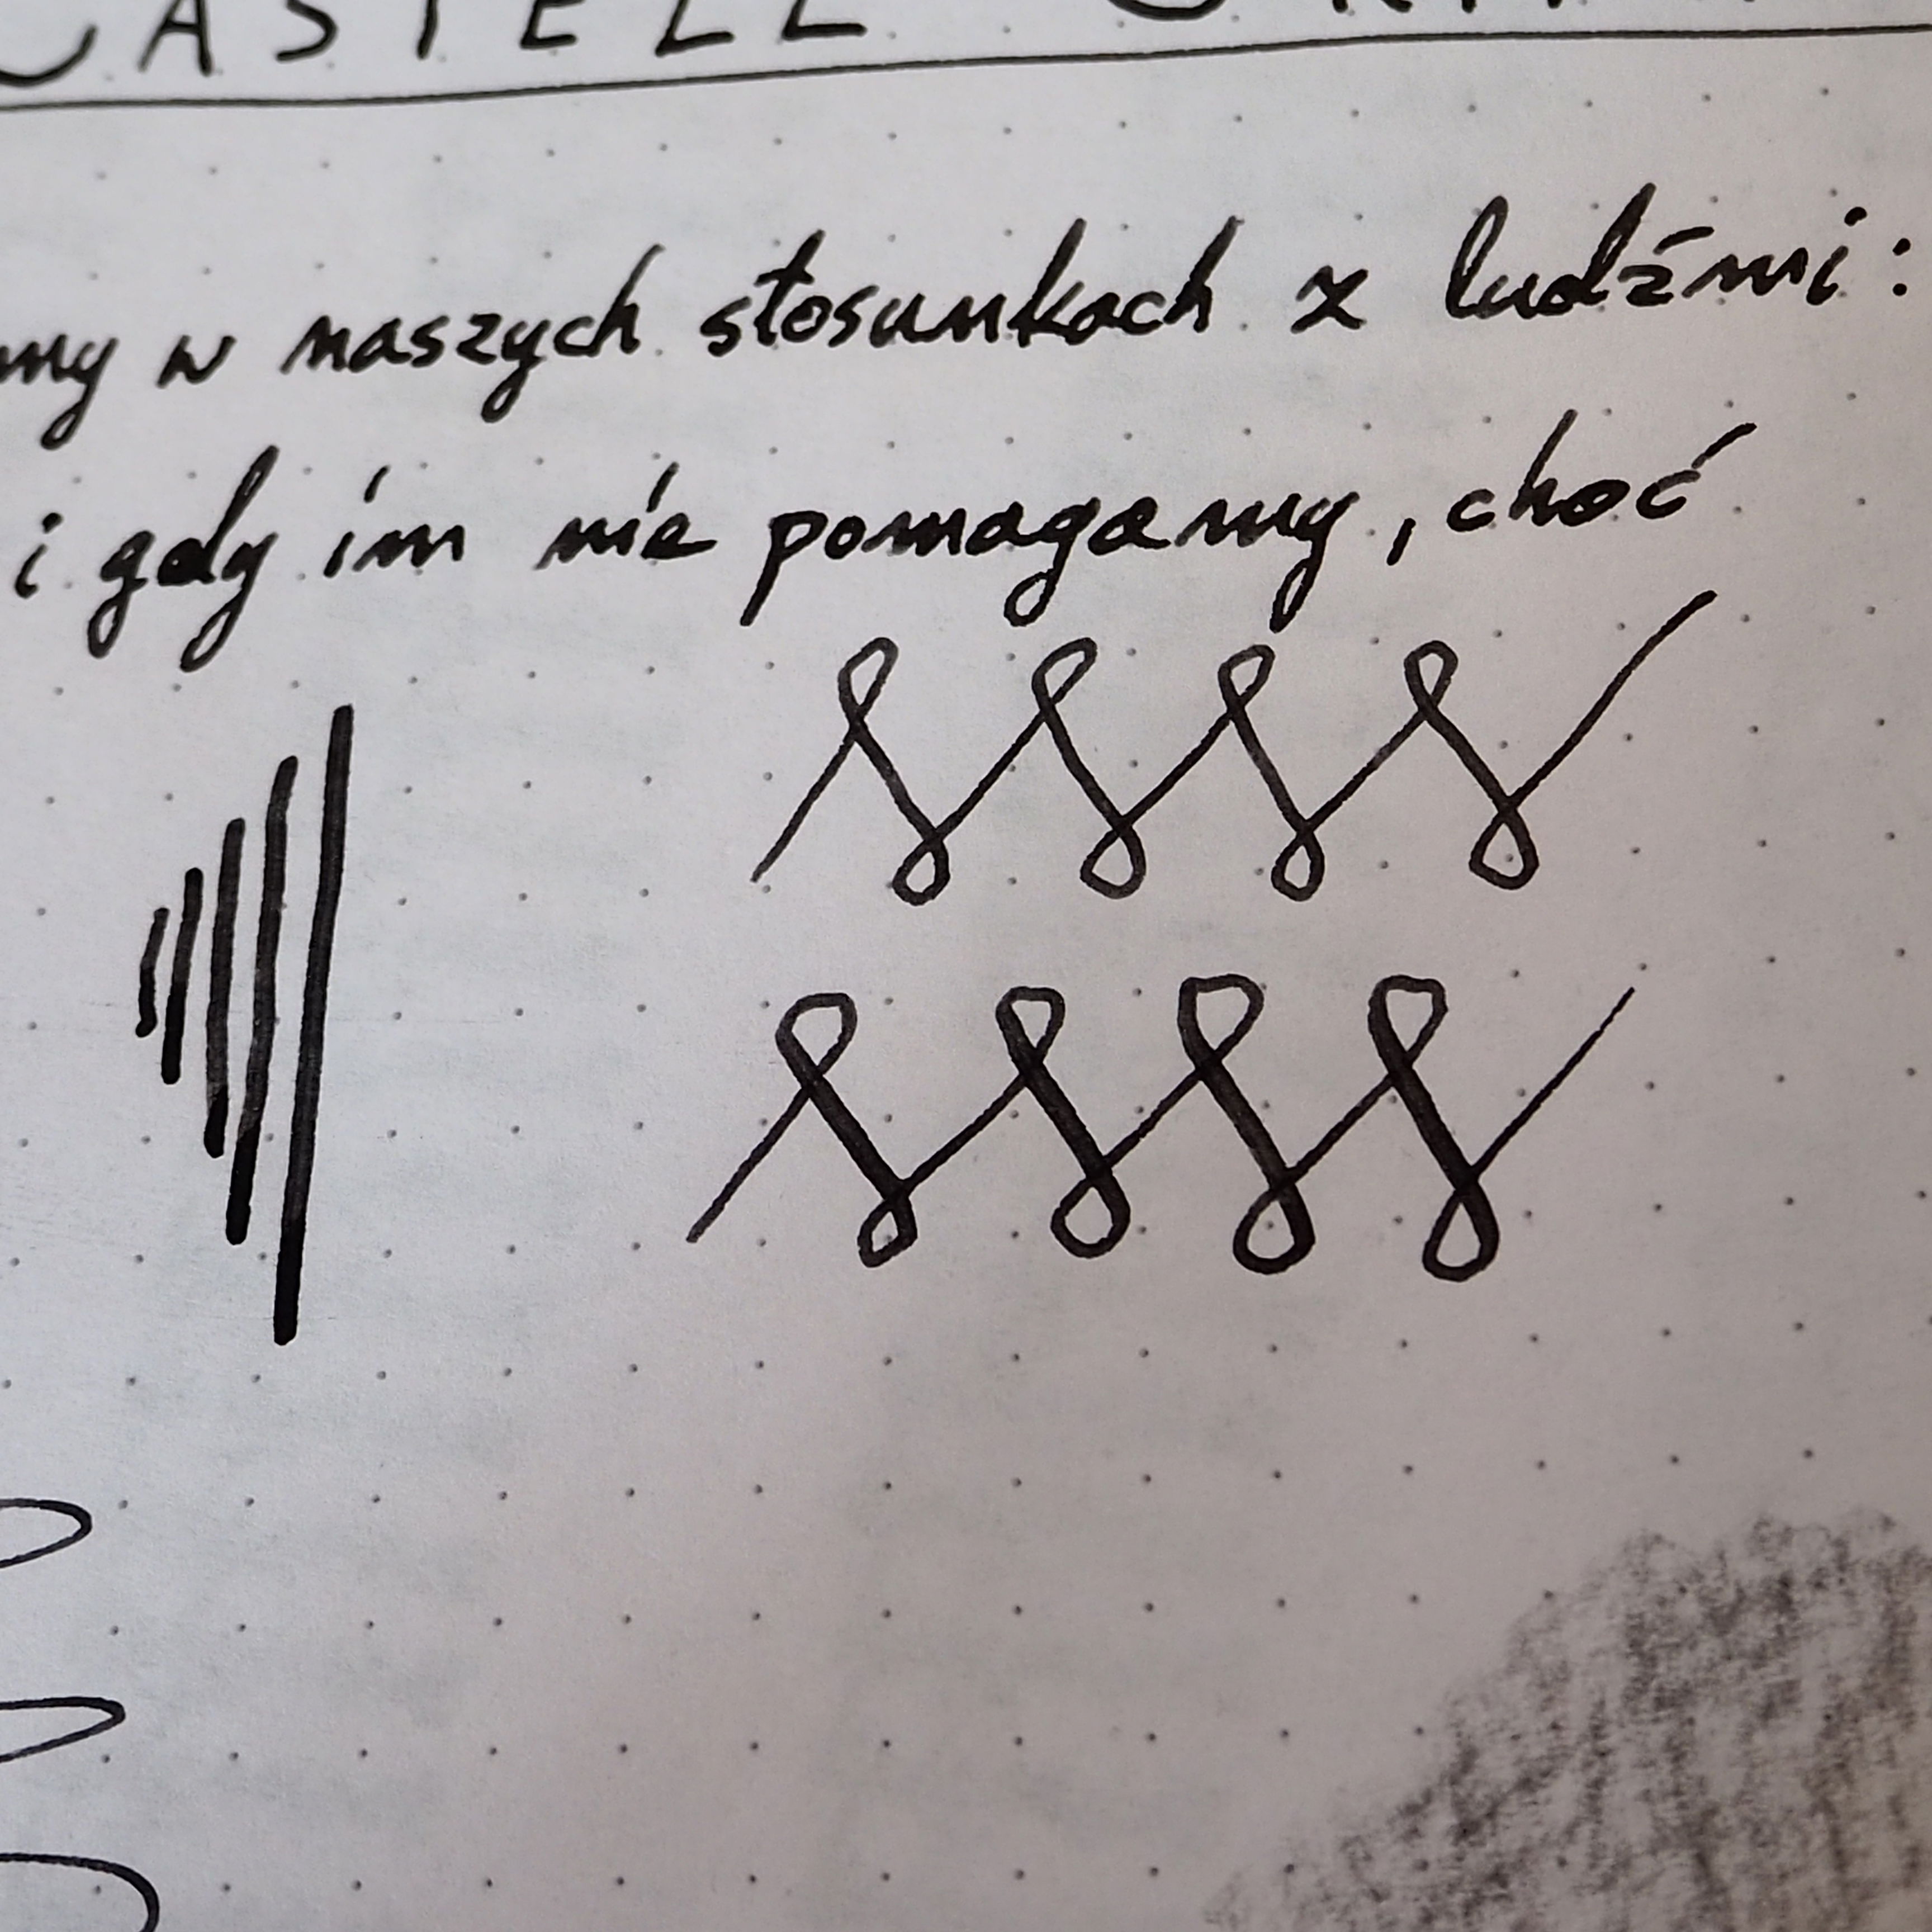 CASTELL
my w naszych stosunkach z ludźmi:
i gdy im nie pomagamy, choć